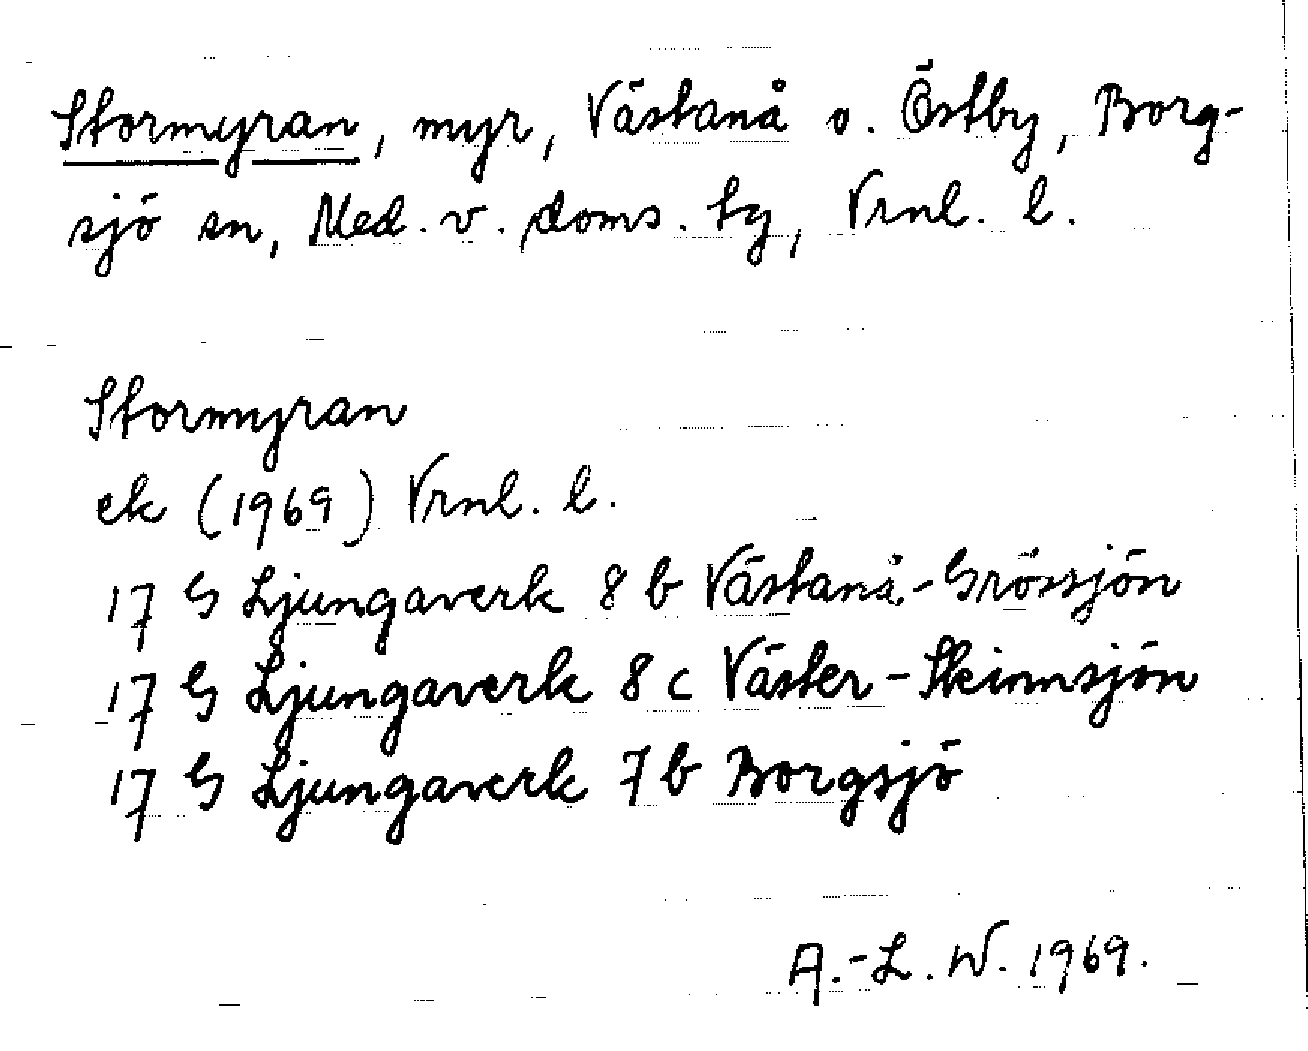 Stormyran, myr, Västanå o. Östby, Borg-
sjö sn, Med. v. doms. tg, Vrnl. l.
Stormyran
ek (1969) Vrnl. l.
17 G Ljungaverk 8 b Västanå-Grössjön
17 G Ljungaverk 8 c Väster-Skinnsjön
17 G Ljungaverk 7 b Borgsjö
A.-L. W. 1969.